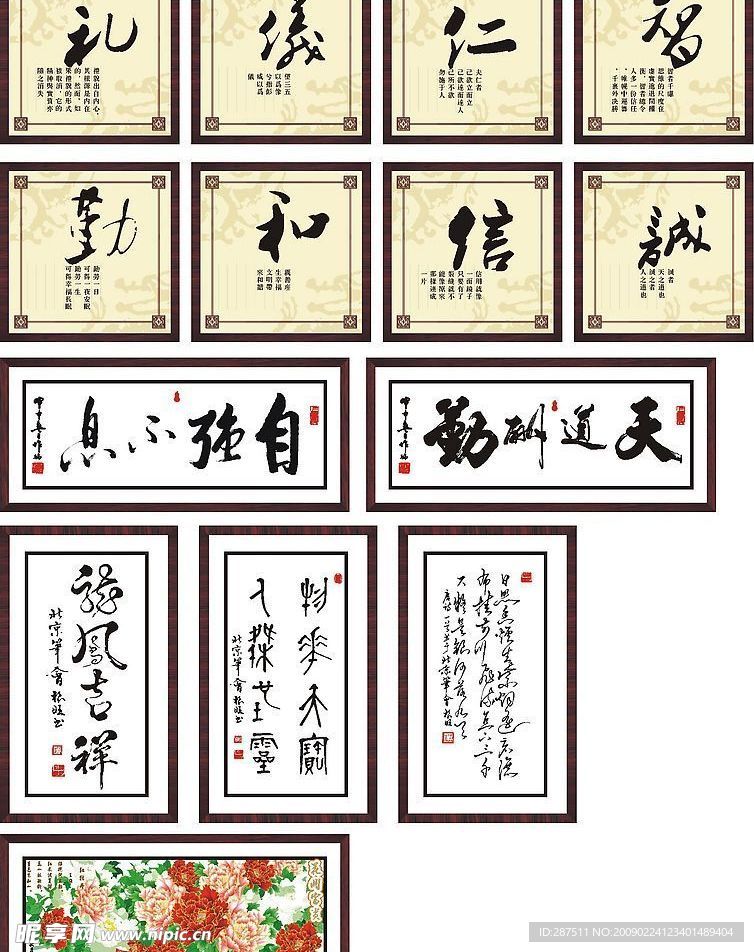 礼
禮貌出自內心，
其根源是內在
的，然而，如
果禮貌的形式
被取消，它的
精神與實質亦
隨之消失
儀
望三五
以爲像
兮指彭
咸以爲
儀
仁
夫仁者
己欲立而立
己欲達而達人
己所不欲
勿施于人
智
智者千慮
思維的尺度在
人多一份信任
帷幄中運籌
千裏外決勝
勤
勤勞一日
可得一夜安眠
勤勞一生
可得幸福長眠
和
親善産
生幸福
文明帶
來和諧
信
信用就像
一面鏡子
只要有了
裂縫就不
能像原來
那樣連成
一片
誠
誠者
天之道也
誠之者
人之道也
自強不息
天道酬勤
龍鳳吉祥
北京筆會
物華天寶
人傑地靈
北京筆會
日照香爐生紫烟遥看瀑
布挂前川飛流直下三千
尺疑是銀河落九天
花開富貴
昵享网 www.nipic.cn
ID:287511 NO:20090224123401489404